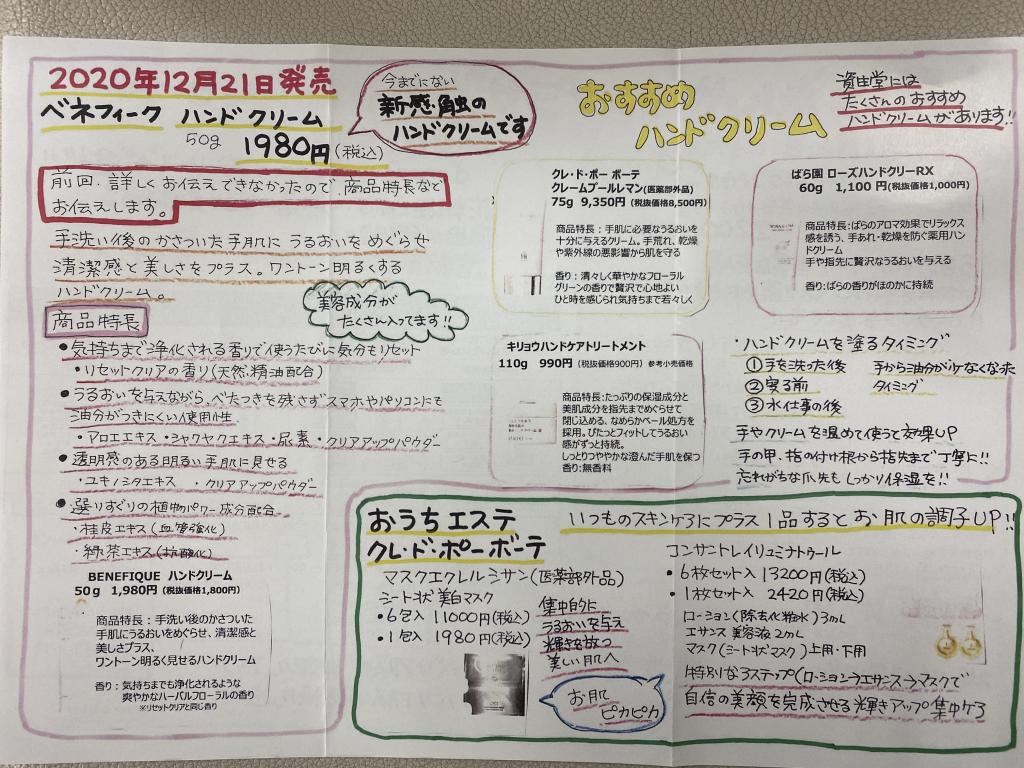 2020年12月21日発売
ベネフィーク ハンドクリーム
50g 1980円(税込)
今までにない
新感触の
ハンドクリームです
前回、詳しくお伝えできなかったので、商品特長など
お伝えします。
手洗い後のかさついた手肌に うるおいをめぐらせ
清潔感と美しさをプラス。ワントーン明るくする
ハンドクリーム。
美容成分が
たくさん入ってます!!
商品特長
●気持ちまで浄化される香りで使うたびに気分もリセット
・リセットクリアの香り(天然精油配合)
●うるおいを与えながら、べたつきを残さずスマホやパソコンにも
油分がつきにくい使用性
・アロエエキス・シャクヤクエキス・尿素・クリアアップパウダー
●透明感のある明るい手肌に見せる
・ユキノシタエキス ・クリアアップパウダー
●選りすぐりの植物パワー成分配合
・桂皮エキス(血管強化)
・緑茶エキス(抗酸化)
BENEFIQUE ハンドクリーム
50g 1,980円(税抜価格1,800円)
商品特長：手洗い後のかさついた
手肌にうるおいをめぐらせ、清潔感と
美しさプラス。
ワントーン明るく見せるハンドクリーム
香り：気持ちまでも浄化されるような
爽やかなハーバルフローラルの香り
※リセットクリアと同じ香り
おすすめ
ハンドクリーム
資生堂には
たくさんのおすすめ
ハンドクリームがあります!!
クレ・ド・ポー ボーテ
クレームプールレマン(医薬部外品)
75g 9,350円(税抜価格8,500円)
商品特長：手肌に必要なうるおいを
十分に与えるクリーム。手荒れ、乾燥
や紫外線の悪影響から肌を守る
香り：清々しく華やかなフローラル
グリーンの香りで贅沢で心地よい
ひと時を感じられ気持ちまで若々しく
ばら園 ローズハンドクリーRX
60g 1,100円(税抜価格1,000円)
商品特長：ばらのアロマ効果でリラックス
感を誘う、手あれ・乾燥を防ぐ薬用ハン
ドクリーム
手や指先に贅沢なうるおいを与える
香り:ばらの香りがほのかに持続
キリョウハンドケアトリートメント
110g 990円(税抜価格900円) 参考小売価格
商品特長：たっぷりの保湿成分と
美肌成分を指先までめぐらせて
閉じ込める、なめらかベール処方を
採用。ぴたっとフィットしてうるおい
感がずっと持続。
しっとりつややかな澄んだ手肌を保つ
香り:無香料
・ハンドクリームを塗るタイミング
①手を洗った後
②寝る前
③水仕事の後
手から油分がなくなった
タイミング
手やクリームを温めて使うて効果UP
手の甲、指の付け根から指先まで丁寧に!!
忘れがちな爪先もしっかり保湿を!!
おうちエステ
いつものスキンケアにプラス1品するとお肌の調子UP!!
クレ・ド・ポーボーテ
マスクエクレルシサン(医薬部外品)
シート状美白マスク
・6包入 11000円(税込)
・1包入 1980円(税込)
集中的に
うるおいを与え
輝きを放つ
美しい肌へ
お肌
ピカピカ
コンサントレイリュミナトゥール
・6枚セット入 13200円(税込)
・1枚セット入 2420円(税込)
ローション(除去化粧水)3mL
エサンス 美容液2mL
マスク(シート状マスク)上用・下用
特別な3ステップ(ローション→エサンス→マスクで
自信の美顔を完成させる輝きアップ集中ケア